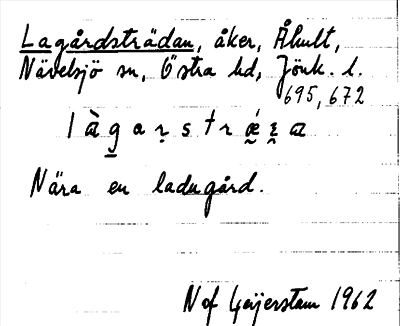 Lagårdsträdan, åker, Åhult,
Nävelsjö sn, Östra hd, Jönk. l.
695, 672
Nära en ladugård.
N of Geijerstam 1962